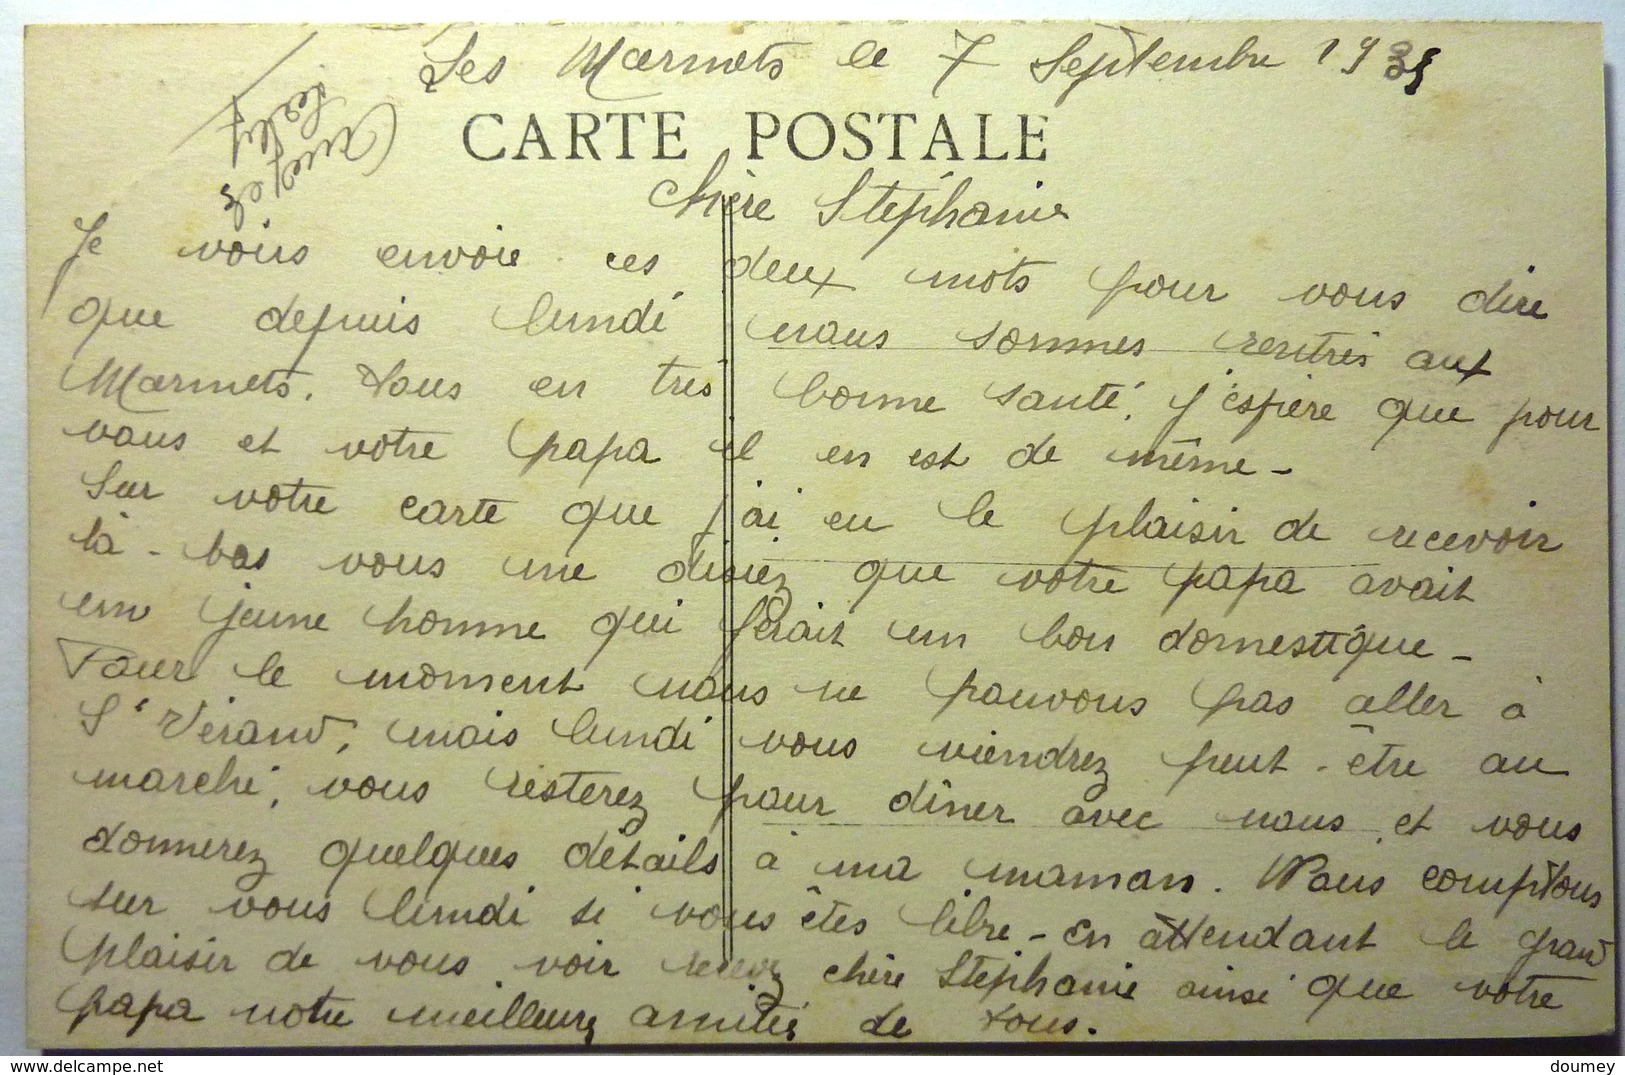 Les Marmets le 7 Septembre 193
CARTE POSTALE
Chère Stéphanie
Je vous envoie ces deux mots pour vous dire
que depuis lundi nous sommes rentrés aux
Marmets. Tous en très bonne santé, j'espère que pour
vous et votre papa il en est de même -
Sur votre carte que j'ai eu le plaisir de recevoir
là-bas vous me disiez que votre papa avait
un jeune homme qui ferait un bon domestique -
Pour le moment nous ne pouvons pas aller à
St Vérand, mais lundi vous viendrez peut-être au
marché, vous resterez pour dîner avec nous et vous
donnerez quelques détails à ma maman. Nous comptons
sur vous lundi si vous êtes libre - En attendant le grand
plaisir de vous voir recevez chère Stéphanie ainsi que votre
papa notre meilleures amitiés de tous.
delcampe.net
doumey